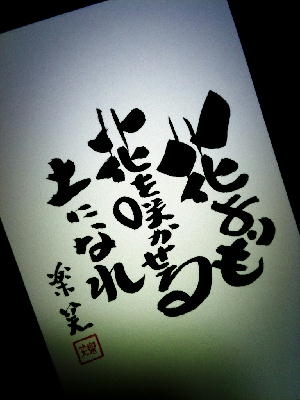 花よりも
花を咲かせる
土になれ
楽笑